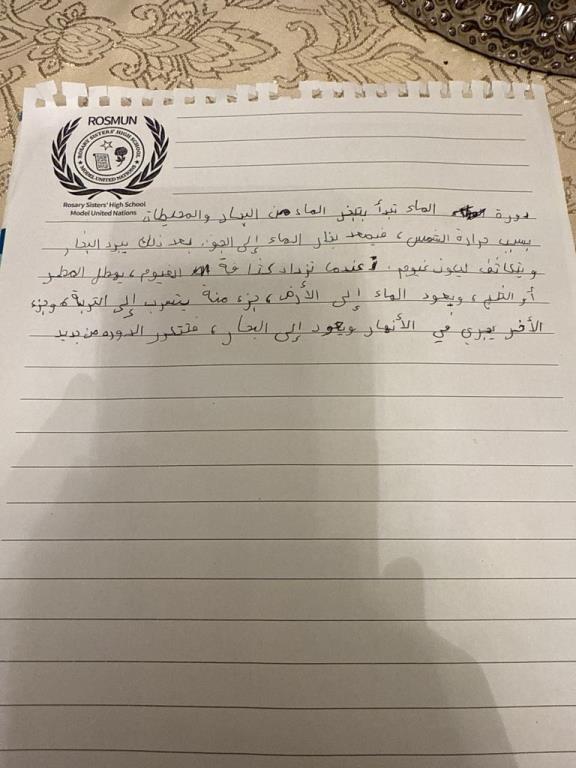 ROSMUN
ROSARY SISTERS' HIGH SCHOOL
MODEL UNITED NATIONS
Rosary Sisters' High School
Model United Nations
دورة الماء تبدأ بتبخر الماء من البحار والمحيطات
بسبب حرارة الشمس، فيصعد بخار الماء إلى الجو. بعد ذلك يبرد البخار
ويتكاثف ليكون غيوم. عندما تزداد كثافة الغيوم، يهطل المطر
أو الثلج، ويعود الماء إلى الأرض، جزء منه يتسرب إلى التربة، وجزء
الأخر يجري في الأنهار ويعود إلى البحار، فتتكرر الدوره من جديد